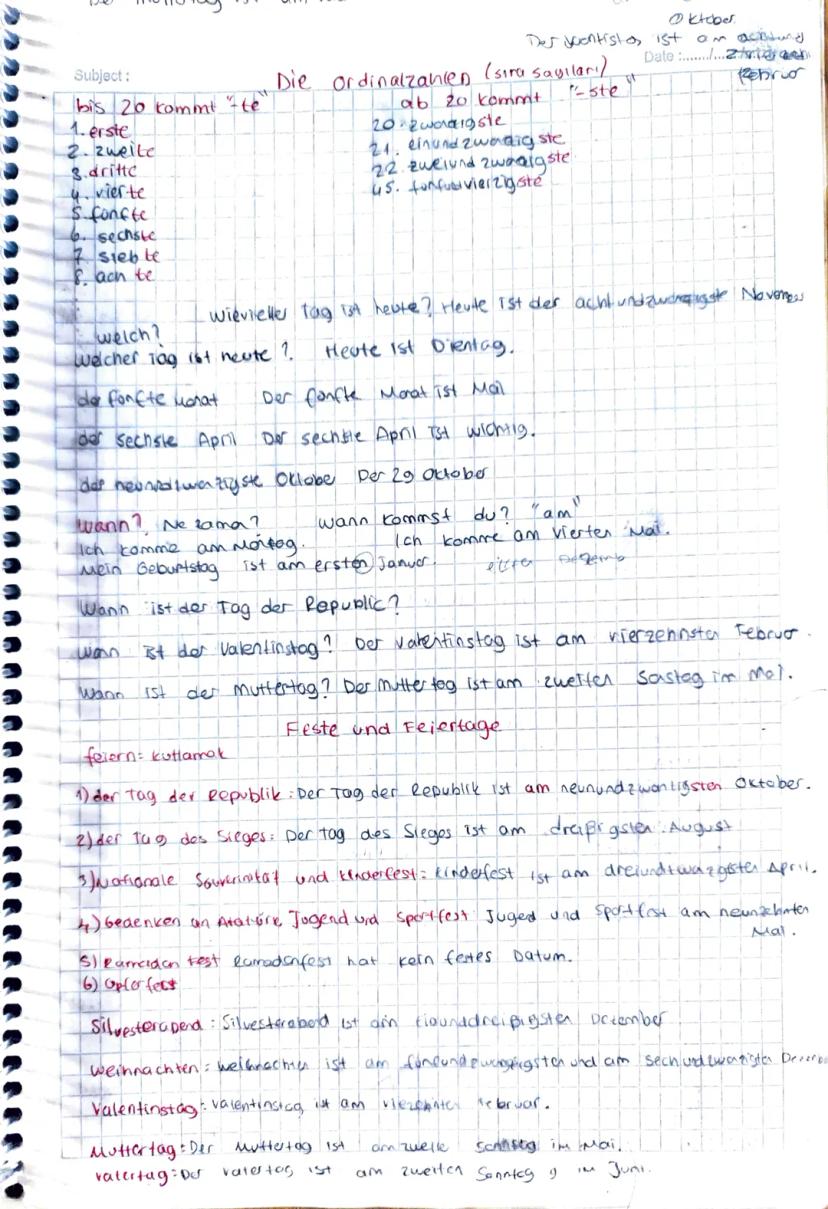 Oktober
ist am
Date :....../...
Februar
Subject :
Die Ordinalzahlen (sıra sayıları)
bis 20 kommt "-te" ab 20 kommt "-ste"
1. erste 20. zwanzigste
2. zweite 21. einundzwanzigste
3. dritte 22. zweiundzwanzigste
4. vierte 45. fonfundvierzigste
5. fonfte
6. sechste
7. siebte
8. achte
wievielte Tag ist heute? Heute ist der achtundzwanzigste November
welch?
welcher Tag ist heute? Heute ist Dientag.
der fonfte Monat Der fonfte Monat ist Mai
der sechste April Der sechste April ist wichtig.
der neunundzwanzigste Oktobe Der 29 Oktober
Wann? Ne zama? Wann kommst du? "am"
Ich komme am Montag. Ich komme am vierten Mai.
Mein Geburtstag ist am ersten Januar.
Wann ist der Tag der Republic?
Wann ist der Valentinstag? Der Valentinstag ist am vierzehnsten Februar.
Wann ist der Muttertag? Der Muttertag ist am zweiten Sastag im Mai.
Feste und Feiertage
feiern = kutlamak
1) der Tag der Republik : Der Tag der Republik ist am neunundzwantigsten Oktober.
2) der Tag des Sieges : Der Tag des Sieges ist am dreißigsten August
3) Nationale Souverinitat und Kinderfest : Kinderfest ist am dreiundzwanzigsten April.
4) Gedenken an Atatürk Jugend und Sportfest Juged und Sportfest am neunzehnten
Mai.
5) Ramadan fest Ramadanfest hat kein festes Datum.
6) Opferfest
Silvesterabend : Silvesterabend ist am Dezember
Weihnachten : Weihnachten ist am und am
Valentinstag : Valentinstag ist am vierzehnten Februar.
Muttertag : Der Muttertag ist am zweite Sonntag im Mai.
Vatertag : Der Vatertag ist am zweiten Sonntag im Juni.